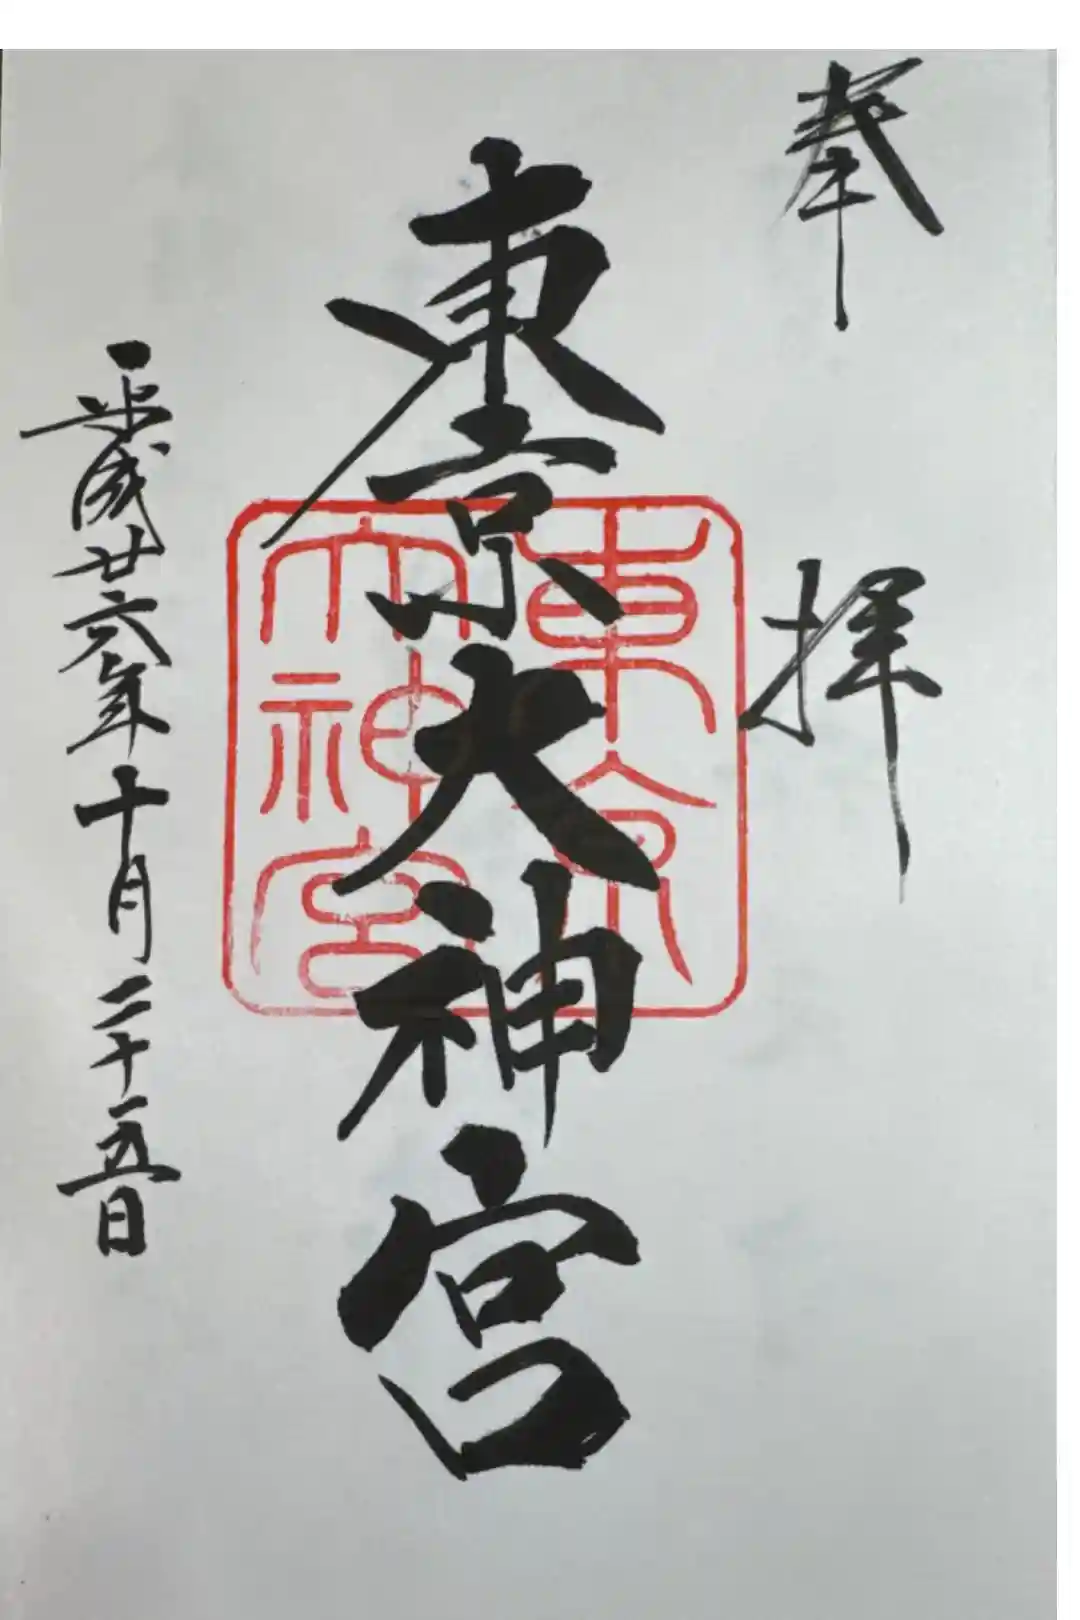 奉拝
東京大神宮
東京
大神宮
平成廿六年十月二十五日